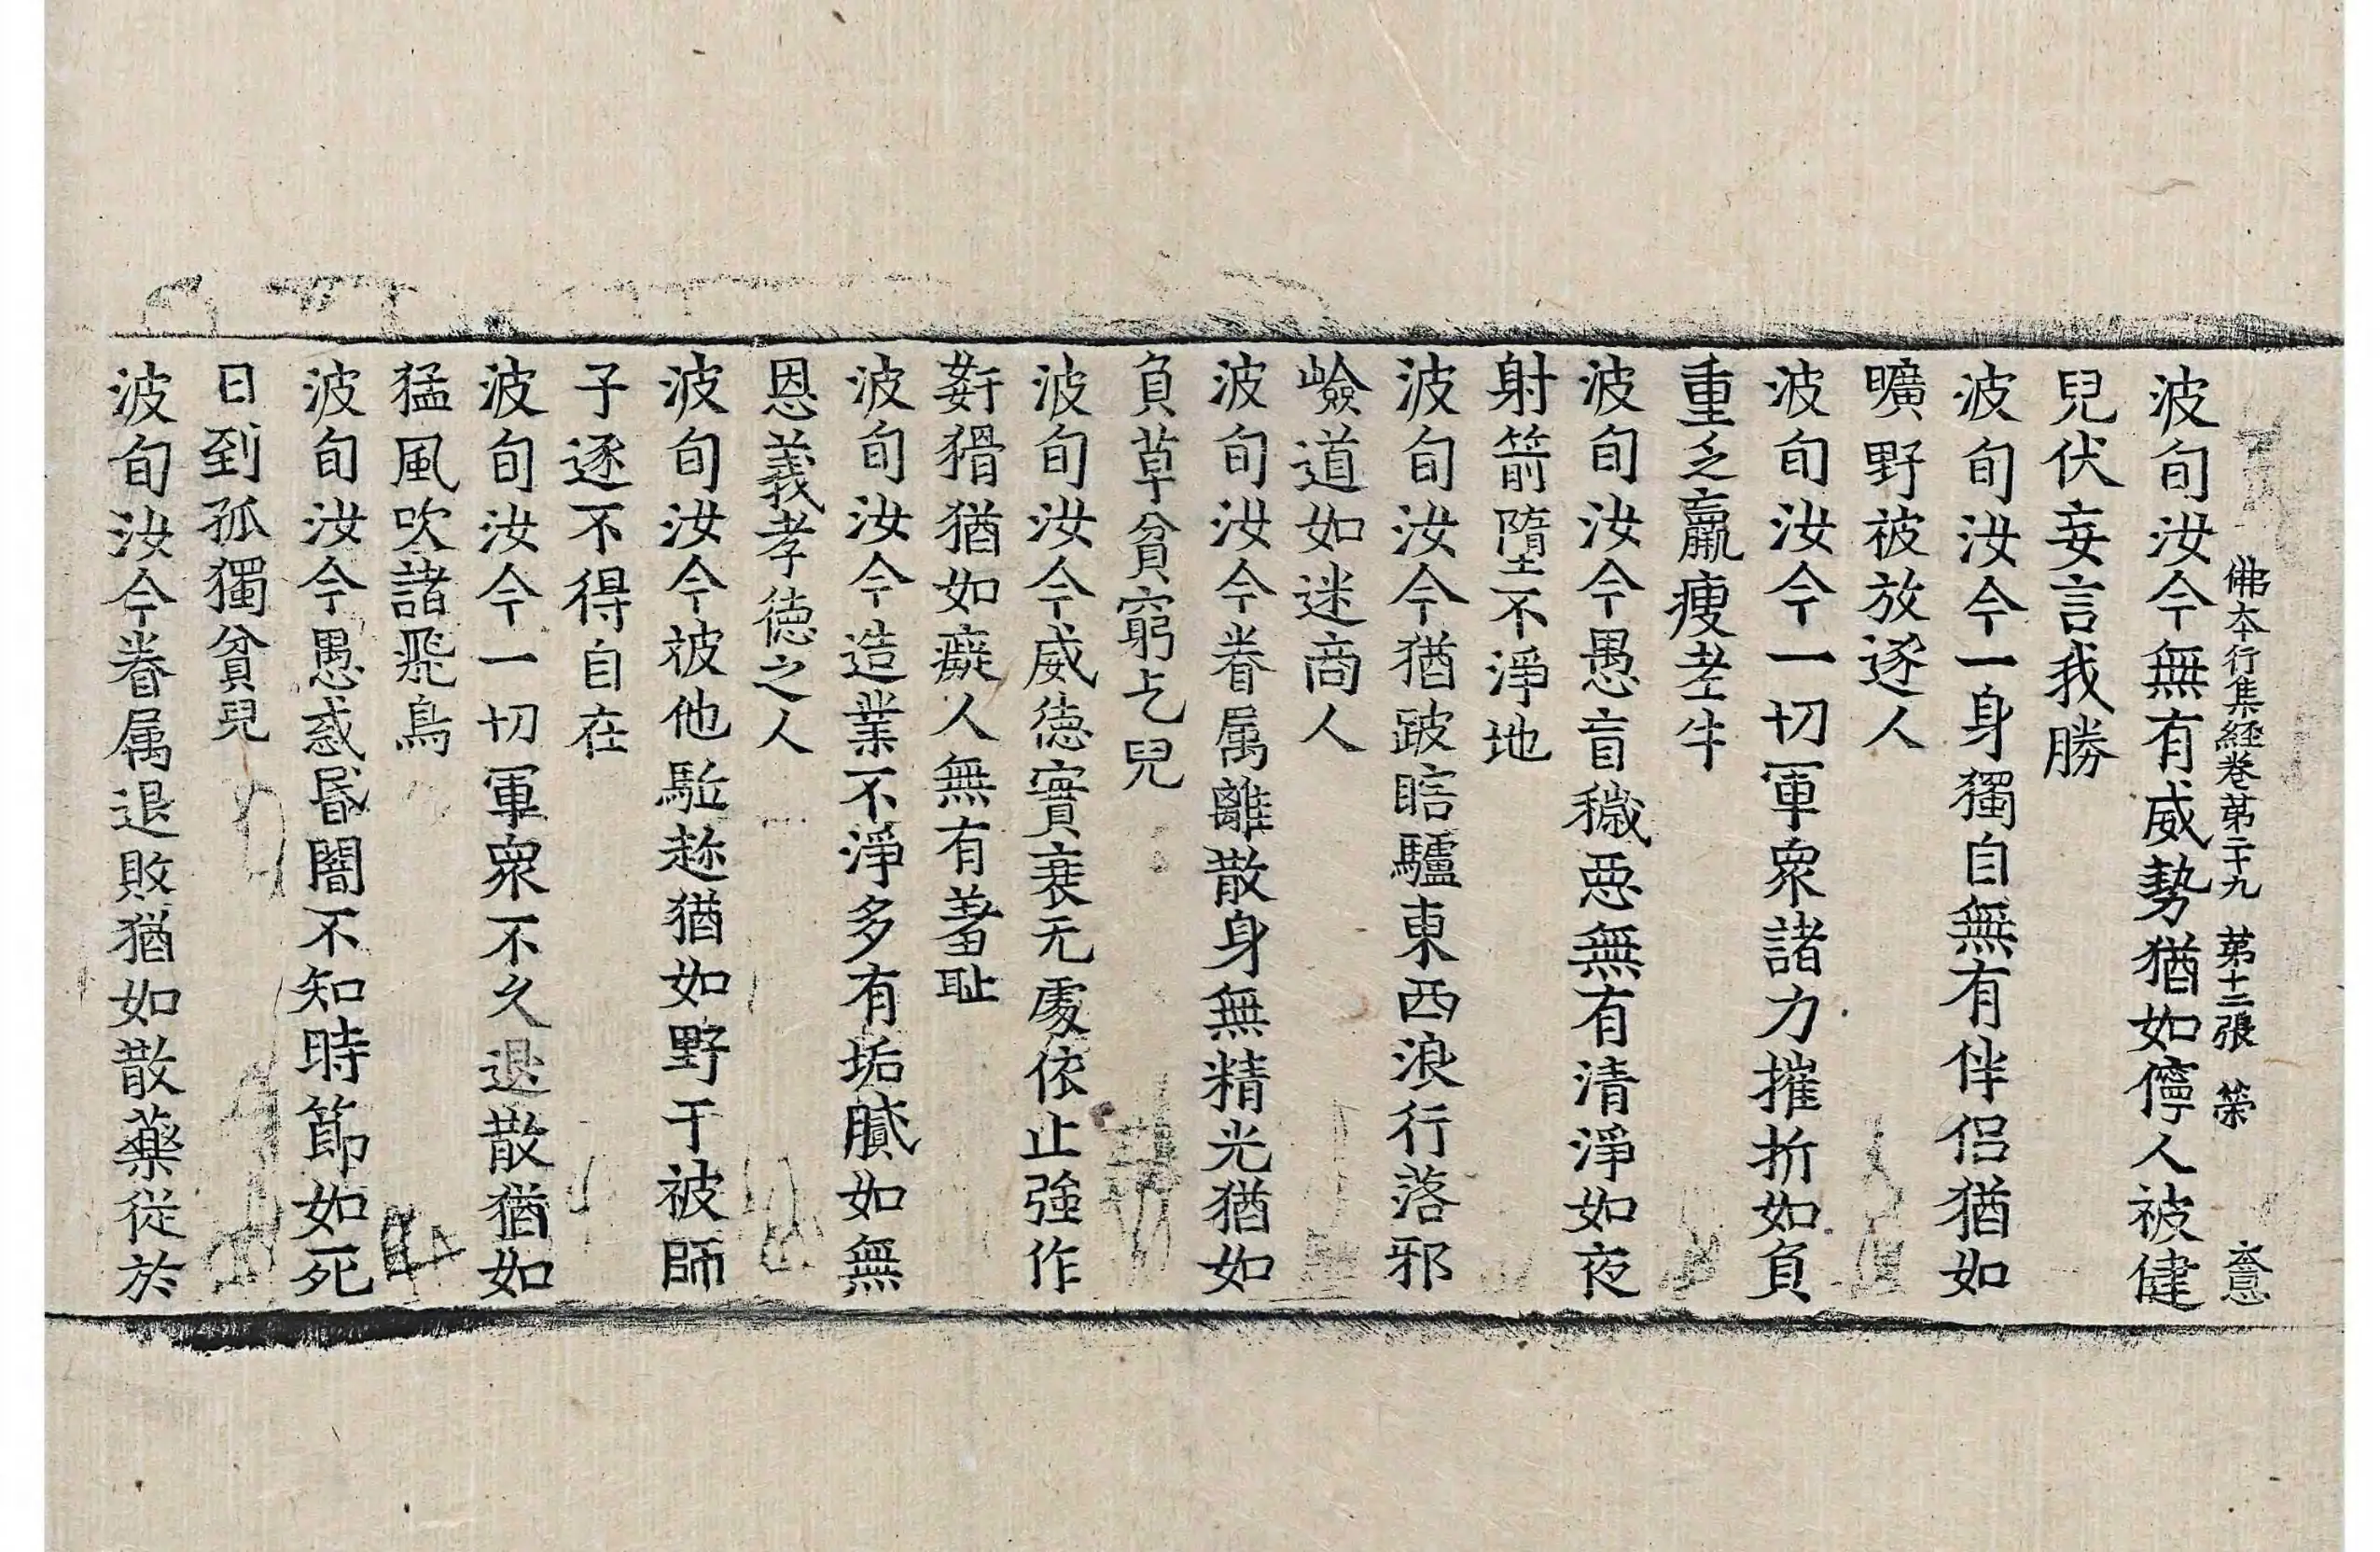 佛本行集経巻苐二十九　苐十二張　荣
波旬汝今無有威勢猶如儜人被健
兒伏妄言我勝
波旬汝今一身獨自無有伴侣猶如
曠野被放逐人
波旬汝今一切軍衆諸力摧折如負
重乏羸痩老牛
波旬汝今愚盲穢惡無有清淨如夜
射箭墮不淨地
波旬汝今猶跛瞎驢東西浪行落邪
嶮道如迷商人
波旬汝今眷属離散身無精光猶如
負草貧窮乞兒
波旬汝今威徳實衰无處依止強作
姧猾猶如癡人無有羞耻
波旬汝今造業不淨多有垢膩如無
恩義孝徳之人
波旬汝今被他駈趂猶如野干被師
子逐不得自在
波旬汝今一切軍衆不久退散猶如
猛風吹諸飛鳥
波旬汝今愚惑昏闇不知時節如死
日到孤獨貧兒
波旬汝今眷属退敗猶如散藥從於